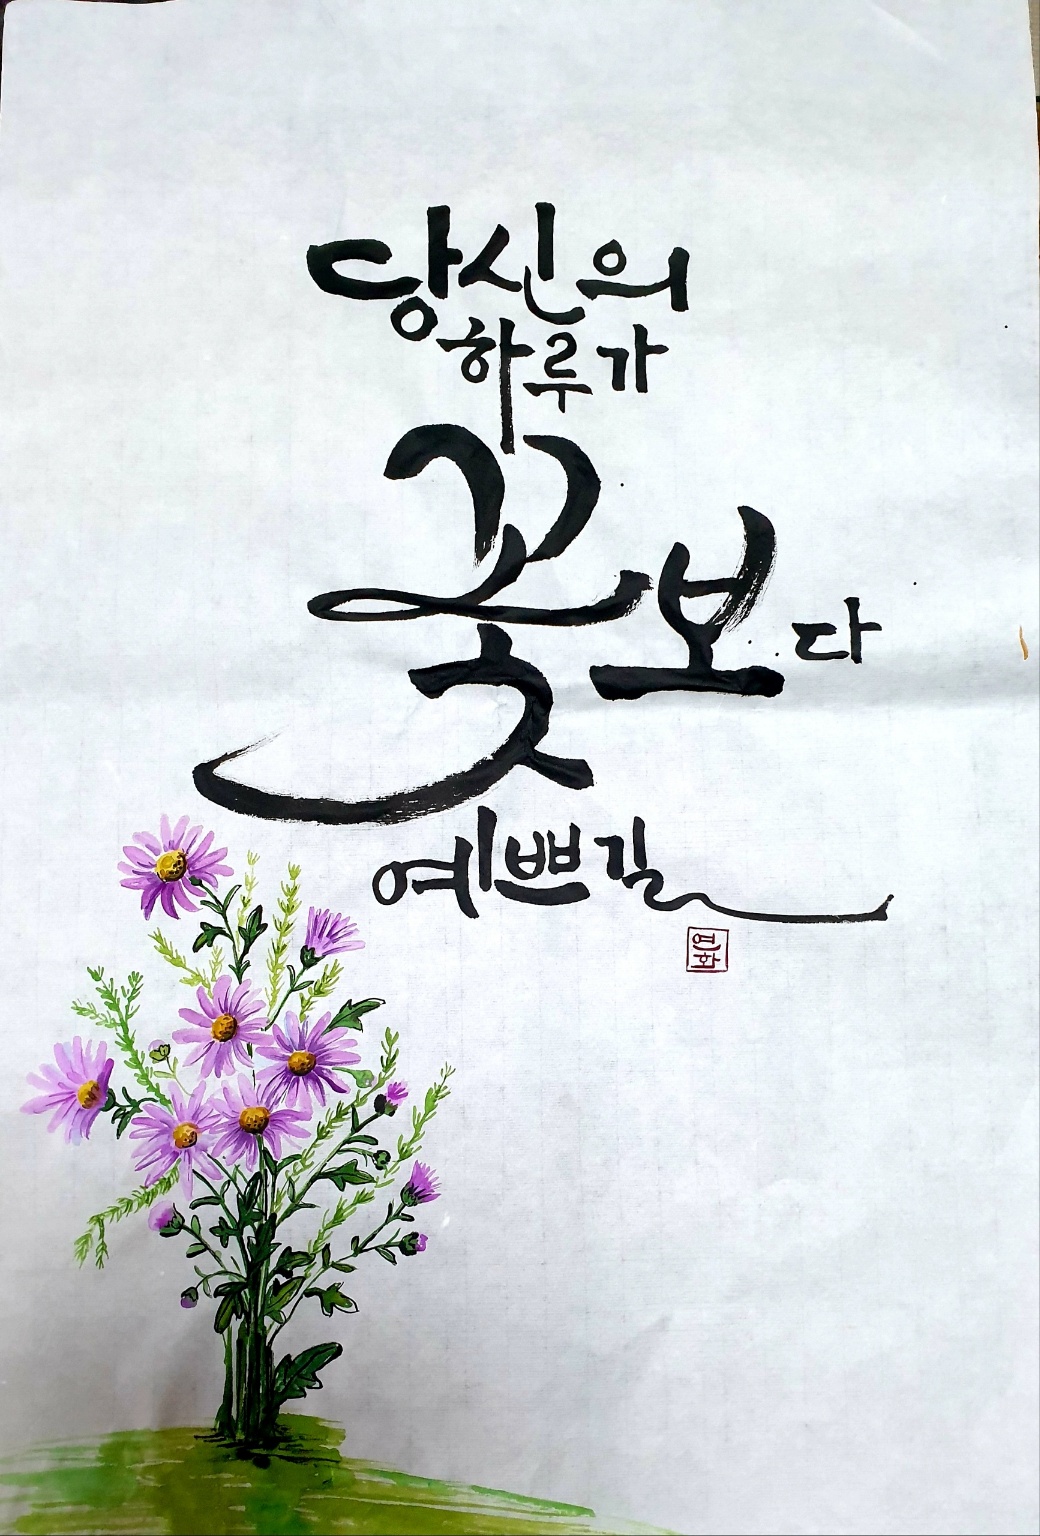 당신의
하루가
꽃보다
예쁘길
연화